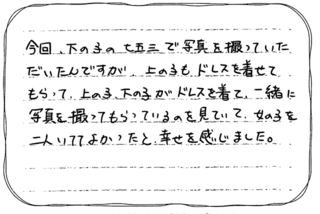 今回、下の子の七五三で写真を撮っていた
だいたんですが、上の子も、ドレスを着せて
もらって、上の子、下の子がドレスを着て、一緒に
写真を撮ってもらっているのを見ていて、女の子を
二人いててよかったと、幸せを感じました。